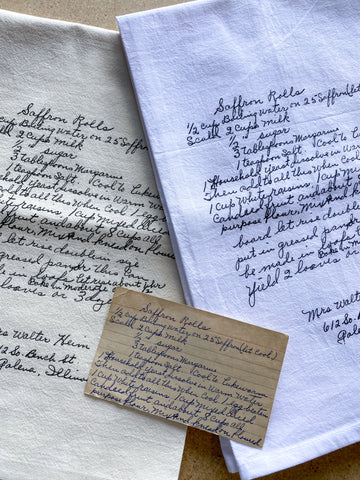 Saffron Rolls
1/2 cup Boiling water on 25 Saffron
Scald 2 cups milk
1/2 " sugar
3 tablespoons Margarine
1 teaspoon Salt (Cool to Lukewarm
1 Household yeast dissolve in Warm Water
Then add to all this When Cool 1 egg
raisins 1 cup mixed
fruit and about 8 cups all
flour, Mix And Knead on floured
let rise double in size
greased pans this can
made in
Bake in Moderate
loaves or 3 dz
Mrs Walter Heim
612 So. Bench St
Galena, Illinois
Saffron Rolls
1/2 cup Boiling water on 25 Saffron (let
Scald 2 cups milk
1/2 " sugar
3 tablespoons Margarine
1 teaspoon Salt (Cool to Luke
1 Household yeast dissolve in Warm
Then add to all this When Cool
1 cup White raisins, 1 cup
Candied fruit and about 8
purpose flour, Mix And Knead
board let rise double
put in greased pans
be made in
Bake in
Yield 2 loaves or
Mrs Wal
612 So.
Galena
Saffron Rolls
1/2 cup Boiling water on 25 Saffron (let cool)
Scald 2 cups milk
1/2 " sugar
3 tablespoons Margarine
1 teaspoon Salt (Cool to Lukewarm
1 Household yeast dissolve in Warm Water
Then add to all this When Cool 1 egg beaten
1 cup White raisins, 1 cup mixed
Candied fruit and about 8 cups all
purpose flour, Mix And Knead on floured